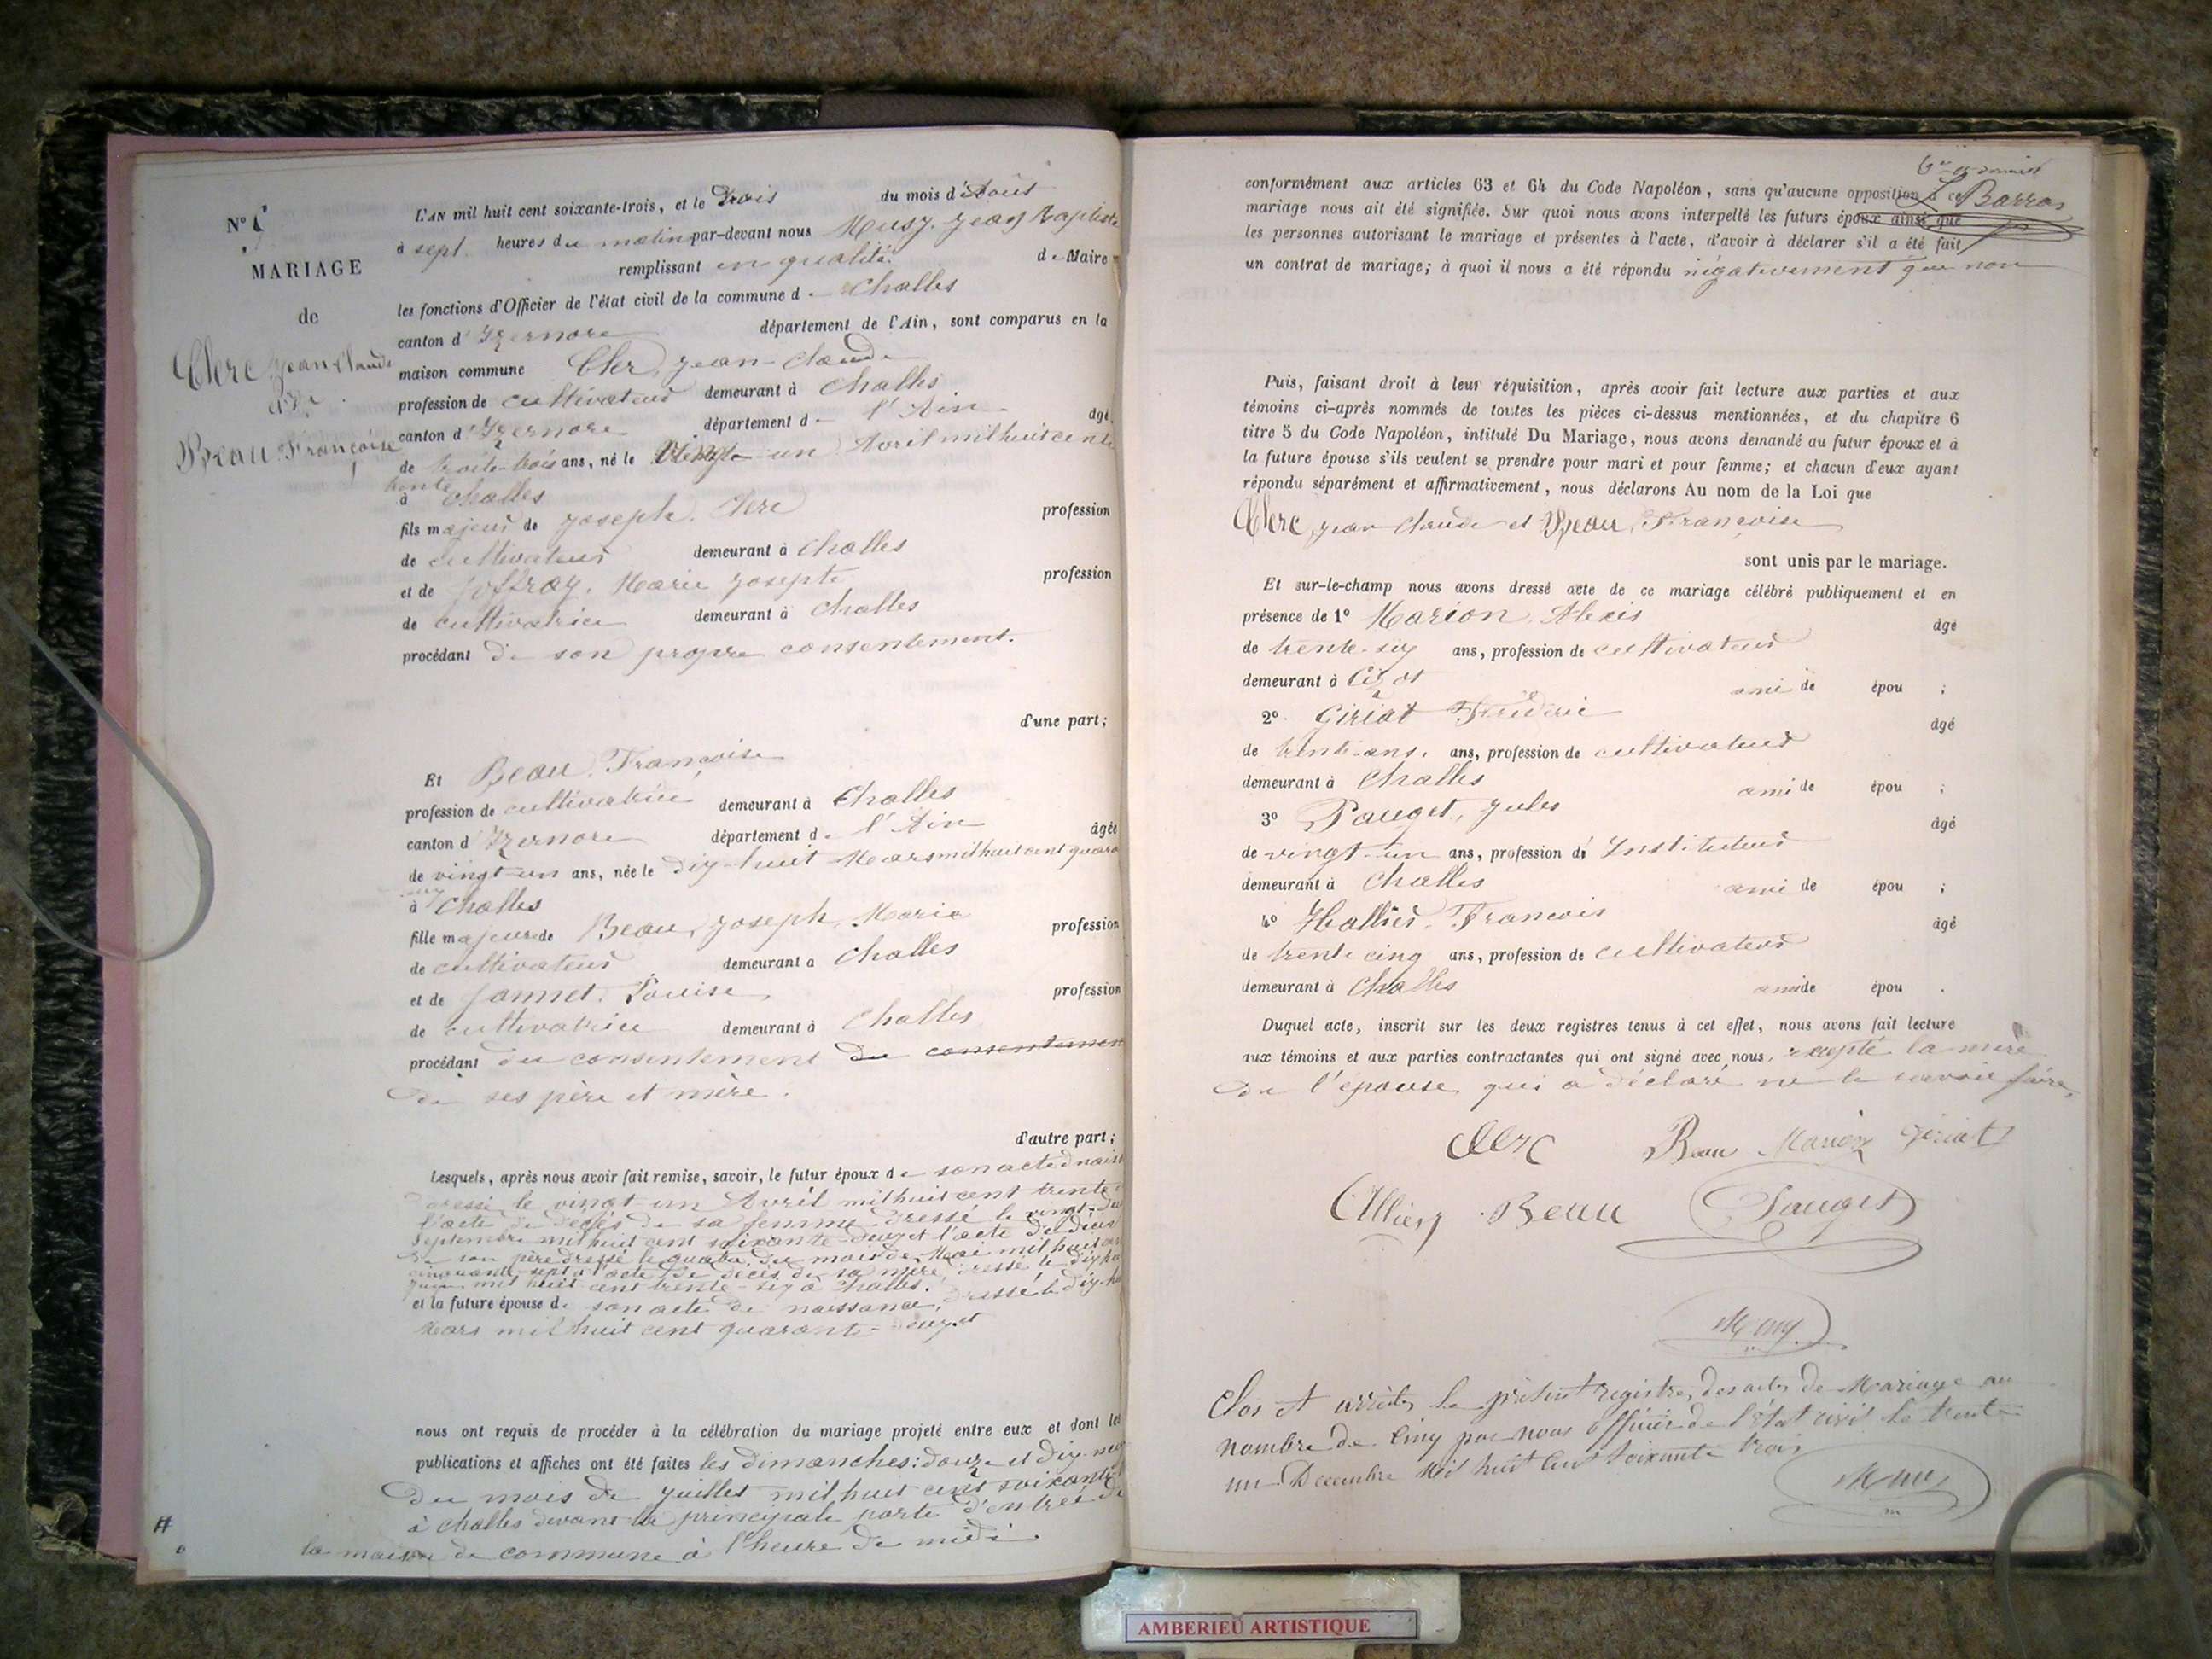 N° 5
MARIAGE
de
Clerc Jean Claude
et de
Beau Françoise
L'AN mil huit cent soixante-trois, et le trois du mois d'Août
à sept heures du matin par-devant nous Musy Jean Baptiste
remplissant en qualité de Maire
les fonctions d'Officier de l'état civil de la commune de Challes
canton d'Izernore département de l'Ain, sont comparus en la
maison commune Cler, Jean-Claude
profession de cultivateur demeurant à Challes
canton d'Izernore département de l'Ain âgé
de trente-trois ans, né le Vingt-un Avril mil huit cent
trente
à Challes
fils majeur de Joseph Clerc profession
de cultivateur demeurant à Challes
et de Joffray, Marie Josepte profession
de cultivatrice demeurant à Challes
procédant de son propre consentement.
d'une part;
Et Beau, Françoise
profession de cultivatrice demeurant à Challes
canton d'Izernore département de l'Ain âgée
de vingt-un ans, née le dix-huit Mars mil huit cent quara
à Challes
fille majeure de Beau, Joseph, Marie profession
de cultivateur demeurant à Challes
et de Jannet, Louise profession
de cultivatrice demeurant à Challes
procédant du consentement du consentement
de ses père et mère.
d'autre part;
Lesquels, après nous avoir fait remise, savoir, le futur époux de son acte d nais
dressé le vingt un Avril mil huit cent trente
l'acte de décès de sa femme dressé le vingt-deux
Septembre mil huit cent soixante-deux et l'acte de décès
de son père dressé le quatre du mois de Mai mil huit cent
cinquante-sept et l'acte de décès de sa mère, dressé le dix hu
Juin mil huit cent trente-six à Challes.
et la future épouse de son acte de naissance, dressé le dix-hu
Mars mil huit cent quarante-deux et
nous ont requis de procéder à la célébration du mariage projeté entre eux et dont les
publications et affiches ont été faites les dimanches: douze et dix-neuf
du mois de Juillet mil huit cent soixante
à Challes devant la principale porte d'entrée de
la maison de commune à l'heure de midi
conformément aux articles 63 et 64 du Code Napoléon, sans qu'aucune opposition à ce
mariage nous ait été signifiée. Sur quoi nous avons interpellé les futurs époux ainsi que
les personnes autorisant le mariage et présentes à l'acte, d'avoir à déclarer s'il a été fait
un contrat de mariage; à quoi il nous a été répondu négativement que non
Barras
Puis, faisant droit à leur réquisition, après avoir fait lecture aux parties et aux
témoins ci-après nommés de toutes les pièces ci-dessus mentionnées, et du chapitre 6
titre 5 du Code Napoléon, intitulé Du Mariage, nous avons demandé au futur époux et à
la future épouse s'ils veulent se prendre pour mari et pour femme; et chacun d'eux ayant
répondu séparément et affirmativement, nous déclarons Au nom de la Loi que
Clerc, Jean Claude et Beau, Françoise
sont unis par le mariage.
Et sur-le-champ nous avons dressé acte de ce mariage célébré publiquement et en
présence de 1° Marion, Alexis âgé
de trente-six ans, profession de cultivateur
demeurant à Cizot ami de épou ;
2° Giriat Frédéric âgé
de trente-ans. ans, profession de cultivateur
demeurant à Challes ami de épou ;
3° Pauget, Jules âgé
de vingt-un ans, profession d'Instituteur
demeurant à Challes ami de épou ;
4° Hallier, Francois âgé
de trente cinq ans, profession de cultivateur
demeurant à Challes ami de épou .
Duquel acte, inscrit sur les deux registres tenus à cet effet, nous avons fait lecture
aux témoins et aux parties contractantes qui ont signé avec nous, excepté la mère
de l'épouse qui a déclaré ne le savoir faire,
Clerc Beau Marion Giriat
Alliey Beau Pauget
Musy
Clos et arrêté le présent registre des actes de Mariage au
nombre de Cinq par nous officier de l'état civil le trente
un Decembre Mil huit Cent Soixante trois
Musy
AMBERIEU ARTISTIQUE